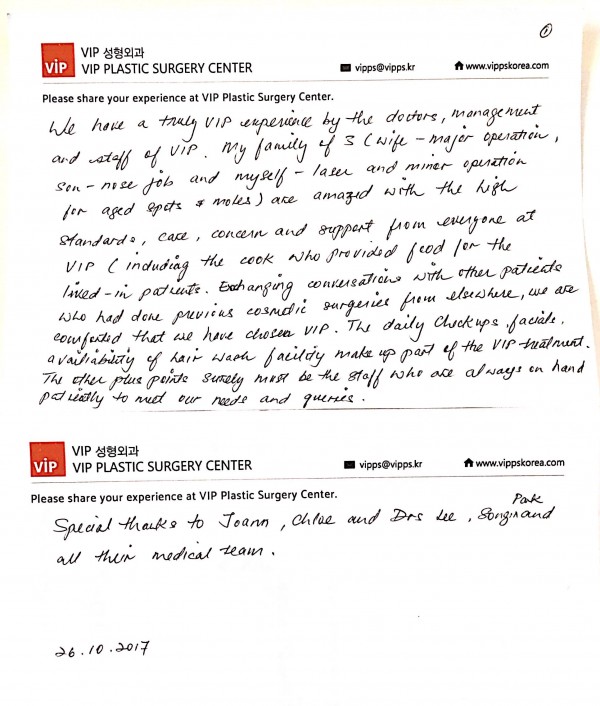 ①
VIP
VIP 성형외과
VIP PLASTIC SURGERY CENTER
vipps@vipps.kr
www.vippskorea.com
Please share your experience at VIP Plastic Surgery Center.
We have a truly VIP experience by the doctors, management
and staff of VIP. My family of 3 (wife - major operation,
son - nose job and myself - laser and minor operation
for aged spots & moles) are amazed with the high
standards, care, concern and support from everyone at
VIP (including the cook who provided food for the
lived-in patients. Exchanging conversations with other patients
who had done previous cosmetic surgeries from elsewhere, we are
comforted that we have chosen VIP. The daily checkups, facials,
availiability of hair wash facility make up part of the VIP treatment.
The other plus points surely must be the staff who are always on hand
patiently to meet our needs and queries.
VIP
VIP 성형외과
VIP PLASTIC SURGERY CENTER
vipps@vipps.kr
www.vippskorea.com
Please share your experience at VIP Plastic Surgery Center.
Park
Special thanks to Joann, Chloe and Drs Lee, and
all their medical team.
26.10.2017